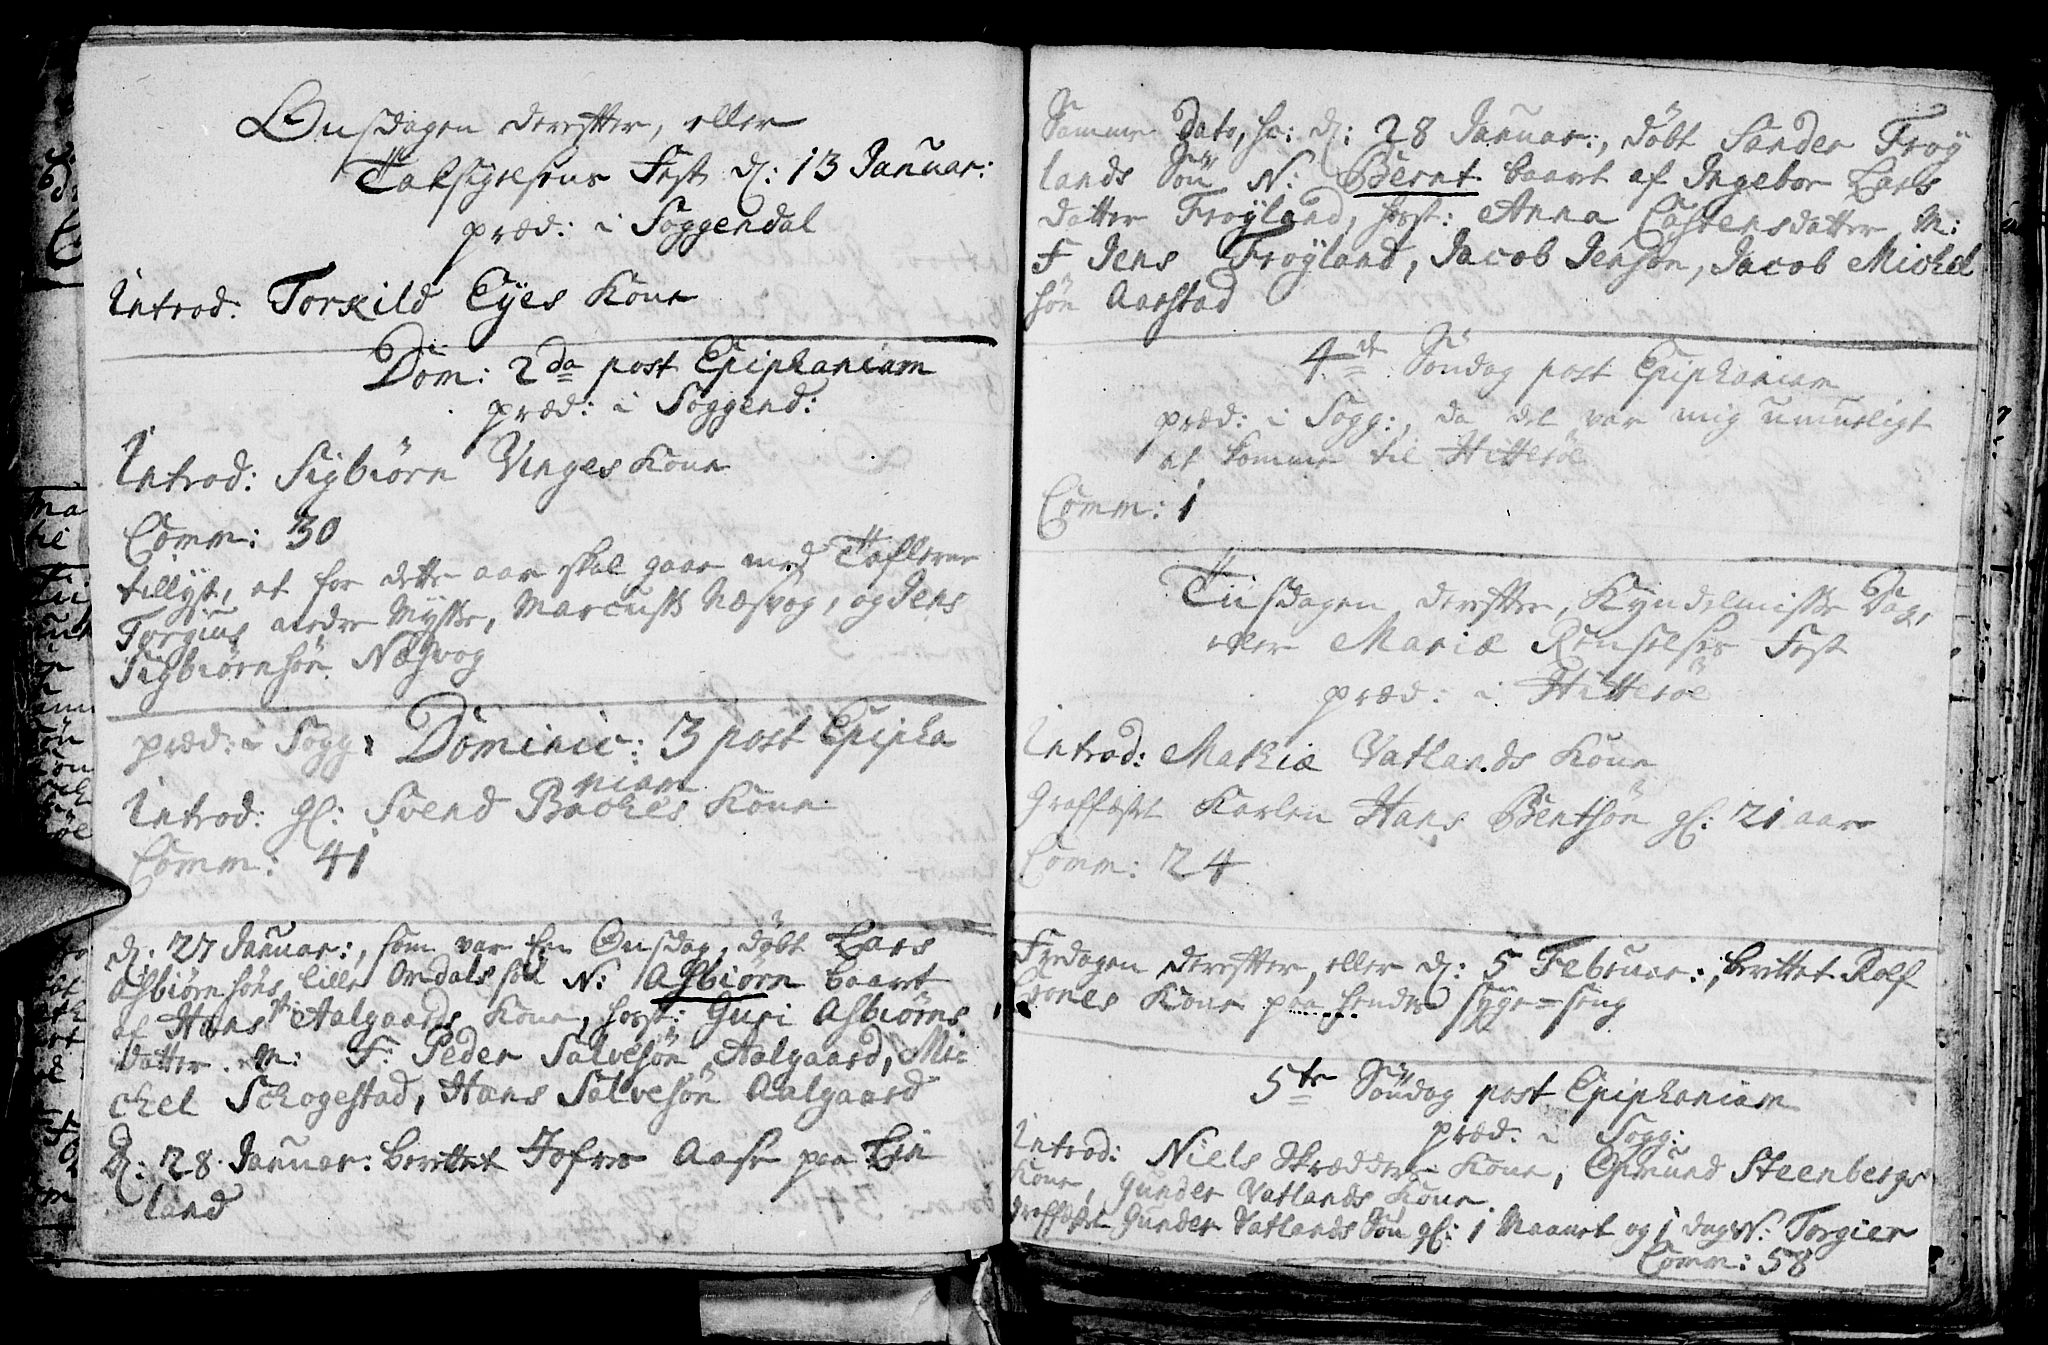 Onsdagen derefter, eller
Taksigelsens Fest d: 13 Januar:
præd: i Soggendal
Introd: Torkild Eÿes Kone
Dom: 2da post Epiphaniam
præd: i Soggend:
Introd: Sigbiørn Vinges Kone
Comm: 30
tillyst, at for dette aar skal gaae med Taflerne
Torgius Mydse, Marcus Næsvog, og Jens
Sigbiørnsøn Næsvog
præd: i Sogg: Dominic: 3 post Epipha
niam
Introd: gl: Svend Backes Kone
Comm: 41
d. 27 Januar:, som var en Onsdag, døbt Lars
Asbiørnsøns lille Ordals søn N: Asbiørn baaret
af Hans Aalgaards Kone, host: Guri Asbiørns
datter. M: F. Peder Salvesøn Aalgaard, Mi
chel Schogestad, Hans Salvesøn Aalgaard
D: 28 Januar: berettet Tofres Aase paa Eia
land
Samme dato, sc: d: 28 Januar:, døbt Sander Frøÿ
lands Søn N: Bernt baaret af Ingebor Lars
datter Frøÿland, host: Anna Castensdatter M:
F Jens Frøÿland, Jacob Jensøn, Jacob Michel
søn Aarstad
4de Søndag post Epiphaniam
præd: i Sogg:, da det var mig umueligt
at komme til Hitterøe
Comm: 1
Tiisdagen derefter, Kyndelmisse Dag,
eller Mariæ Renselses Fest
præd: i Hitterøe
Introd: Mathiæ Vatlands Kone
Graffæstet Karlen Hans Berntsøn gl: 21 aar
Comm: 24
Fredagen derefter, eller d: 5 Februar:, berettet Rolf
Kone paa hendes syge=seng
5te Søndag post Epiphaniam
præd: i Sogg:
Introd: Niels Skrædders Kone, Osmund Steenbergs
Kone, Gunder Vatlands Kone.
Graffæstet Gunder Vatlands Søn gl: 1 Maanet og 1 dag N: Torgier
Comm: 58